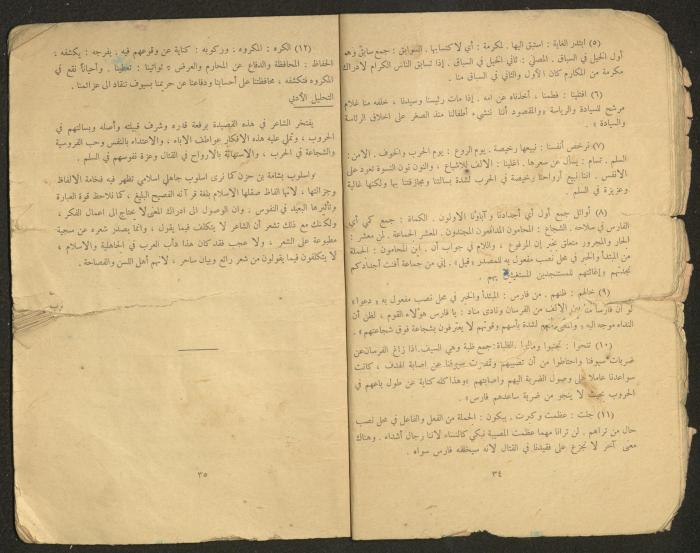 (٥) ابتدر الغاية : استبق اليها . لمكرمة : أي لاكتسابها . السوابق : جمع سابق وهو
أول الخيل في السباق . المصلي : ثاني الخيل في السباق . إذا تسابق الناس الكرام لادراك
مكرمة من المكارم كان الأول والثاني في السباق منا .
(٦) افتلينا : فطمنا ، أخذناه عن امه . إذا مات رئيسنا وسيدنا ، خلفه منا غلام
مرشح للسيادة والرياسة «والمقصود أننا ننشيء أطفالنا منذ الصغر على اخلاق الرئاسة
والسيادة » .
(٧) نرخص أنفسنا : نبيعها رخيصة . يوم الروع : يوم الحرب والخوف . الامن :
السلم . تسام : يسأل عن سعرها . اغلينا : الالف للاشباع ، والنون نون النسوة تعود على
الانفس . اننا نبيع أرواحنا رخيصة في الحرب لشدة بسالتنا ومجازفتنا بها ولكنها غالية
وعزيزة في السلم .
(٨) أوائل جمع أول أي أجدادنا وآباؤنا الاولون . الكماة : جمع كمي أي
الفارس في سلاحه . الشجاع : المحامون المدافعون المنجدون . المعشر الجماعة . لمن معشر :
الجار والمجرور متعلق بخبر إن المرفوع ، واللام في جواب أن . اين المحامون : الجملة
من المبتدأ والخبر في محل نصب مفعول به للمصدر «قيل» . إني من جماعة أفنت أجدادكم
نجدتهم «إغاثتهم للمستنجدين المستغيثين بهم .
(٩) خالهم : ظنهم . من فارس : المبتدأ والخبر في محل نصب مفعول به « دعوا»
لو أن فارساً منا بين الالف من الفرسان ونادى مناد : يا فارس هؤلاء القوم ، لظن أن
النداء موجه اليه لشدة بأسهم وقوتهم لا يعترفون بشجاعة فوق شجاعتهم» .
(١٠) تنحوا : تجنبوا ومالوا . الظباة : جمع ظبة وهي السيف . اذا زاغ الفرسان عن
ضربات سيوفنا واحتاطوا من أن تصيبهم وقصرت سيوفنا عن اصابة الهدف ، كانت
سواعدنا عاملاً على وصول الضربة اليهم واصابتهم «وهذا كله كناية عن طول باعهم في
الحروب بحيث لا ينجو من ضربة ساعدهم فارس» .
(١١) جلت : عظمت وكبرت . يبكون : الجملة من الفعل والفاعل في محل نصب
حال من تراهم . لن ترانا مهما عظمت المصيبة نبكي كالنساء لاننا رجال أشداء . وهناك
معنى آخر لا نجزع على فقيدنا في القتال لانه سيخلفه فارس سواه .
٣٤
(١٢) الكره : المكروه . وركوبه : كناية عن وقوعهم فيه . يفرجه : يكشفه :
الحفاظ : المحافظة والدفاع عن المحارم والعرض » تواتينا : تعطينا . وأحياناً نقع في
المكروه فتكشفه ، محافظتنا على أحسابنا ودفاعنا عن حريمنا بسيوف تنقاد الى عزائمنا .
التحليل الأدبي
يفتخر الشاعر في هذه القصيدة برفعة قدره وشرف قبيلته وأصله وبسالتهم في
الحروب ، وتملي عليه هذه الافكار عواطف الاباء ، والاعتداد بالنفس وحب الفروسية
والشجاعة في الحرب ، والاستهانة بالارواح في القتال وعزة نفوسهم في السلم .
واسلوب بشامة بن حزن كما نرى اسلوب جاهلي اسلامي تظهر فيه فخامة الالفاظ
وجزالتها ، لانها الفاظ صقلها الاسلام بلغة قرآنه الفصيح البليغ ، كما نلاحظ قوة العبارة
وتأثيرها البعيد في النفوس . وان الوصول الى ادراك المعنى لا يحتاج الى اعمال الفكر ،
ولكنك مع ذلك تشعر أن الشاعر لا يتكلف فيما يقول ، وانما يصدر شعره عن سجية
مطبوعة على الشعر ، ولا عجب فقد كان هذا دأب العرب في الجاهلية والاسلام ،
لا يتكلفون فيما يقولون من شعر رائع وبيان ساحر ، لانهم أهل اللسن والفصاحة .
٣٥